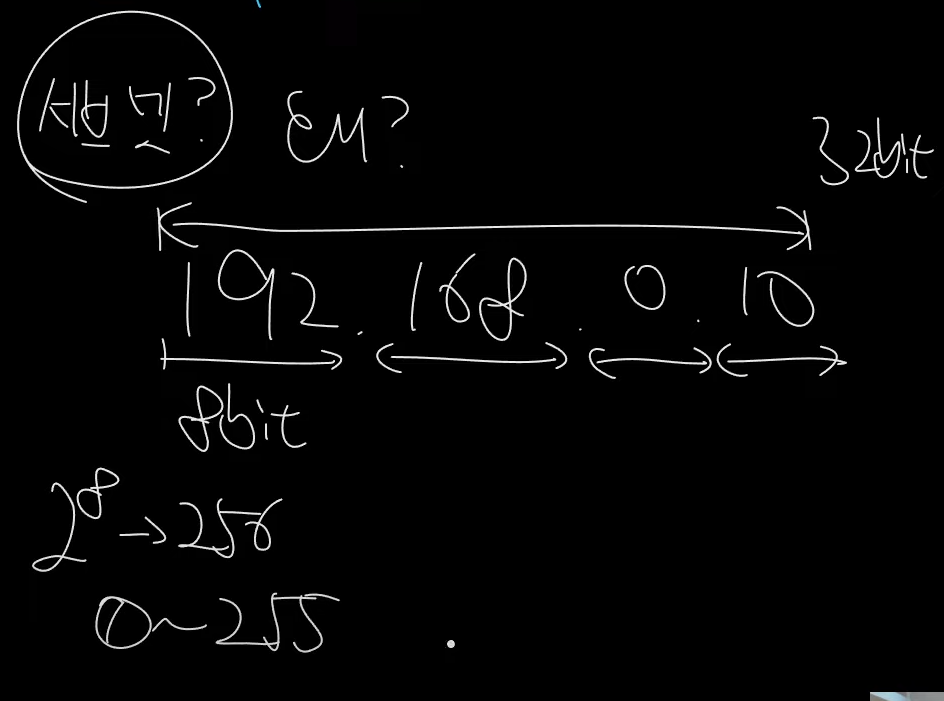 세번 멋?
EM?
32bit
192.168.0.10
8bit
2⁸→256
0~255